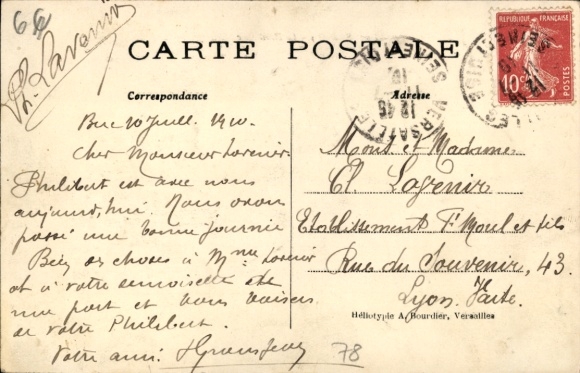 66
Ph. Lavenir
CARTE POSTALE
Correspondance
Adresse
RÉPUBLIQUE FRANÇAISE
10c
POSTES
VERSAILLES
SEINE-ET-OISE
Buc 10 Juill. 1910.
Cher Monsieur Lavenir
Philibert est avec nous
aujourd'hui. Nous avons
passé une bonne journée
Bien des choses à Mme Lavenir
et à votre demoiselle de
ma part et bons baisers
de votre Philibert.
Votre ami.
Monst et Madame
Cl. Lavenir
Etablissement F. Moul et fils
Rue du Souvenir, 43.
Lyon. Vaise.
Héliotypie A. Bourdier, Versailles
78